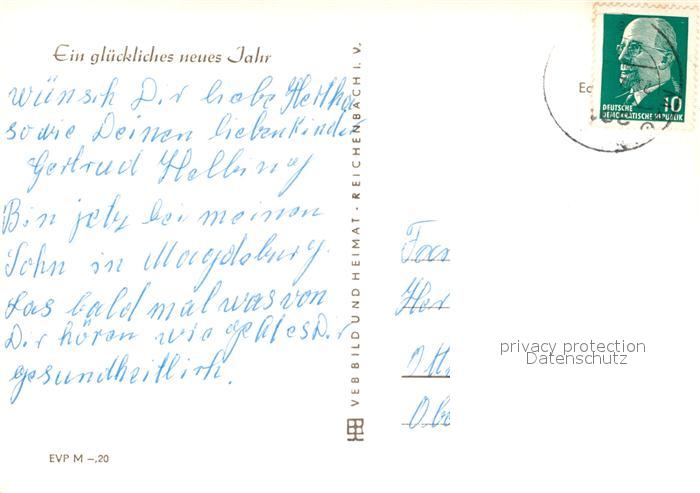 Ein glückliches neues Jahr
wünsch Dir liebe Hertha
sowie Deinen lieben Kinder
Gertrud Helbing
Bin jetz bei meinen
Sohn in Magdeburg.
Las bald mal was von
Dir hören wie geht es Dir
gesundheitlich.
EVP M –,20
VEB BILD UND HEIMAT - REICHENBACH I. V.
DEUTSCHE
DEMOKRATISCHE REPUBLIK
10
Fam
Her
Obe
privacy protection
Datenschutz